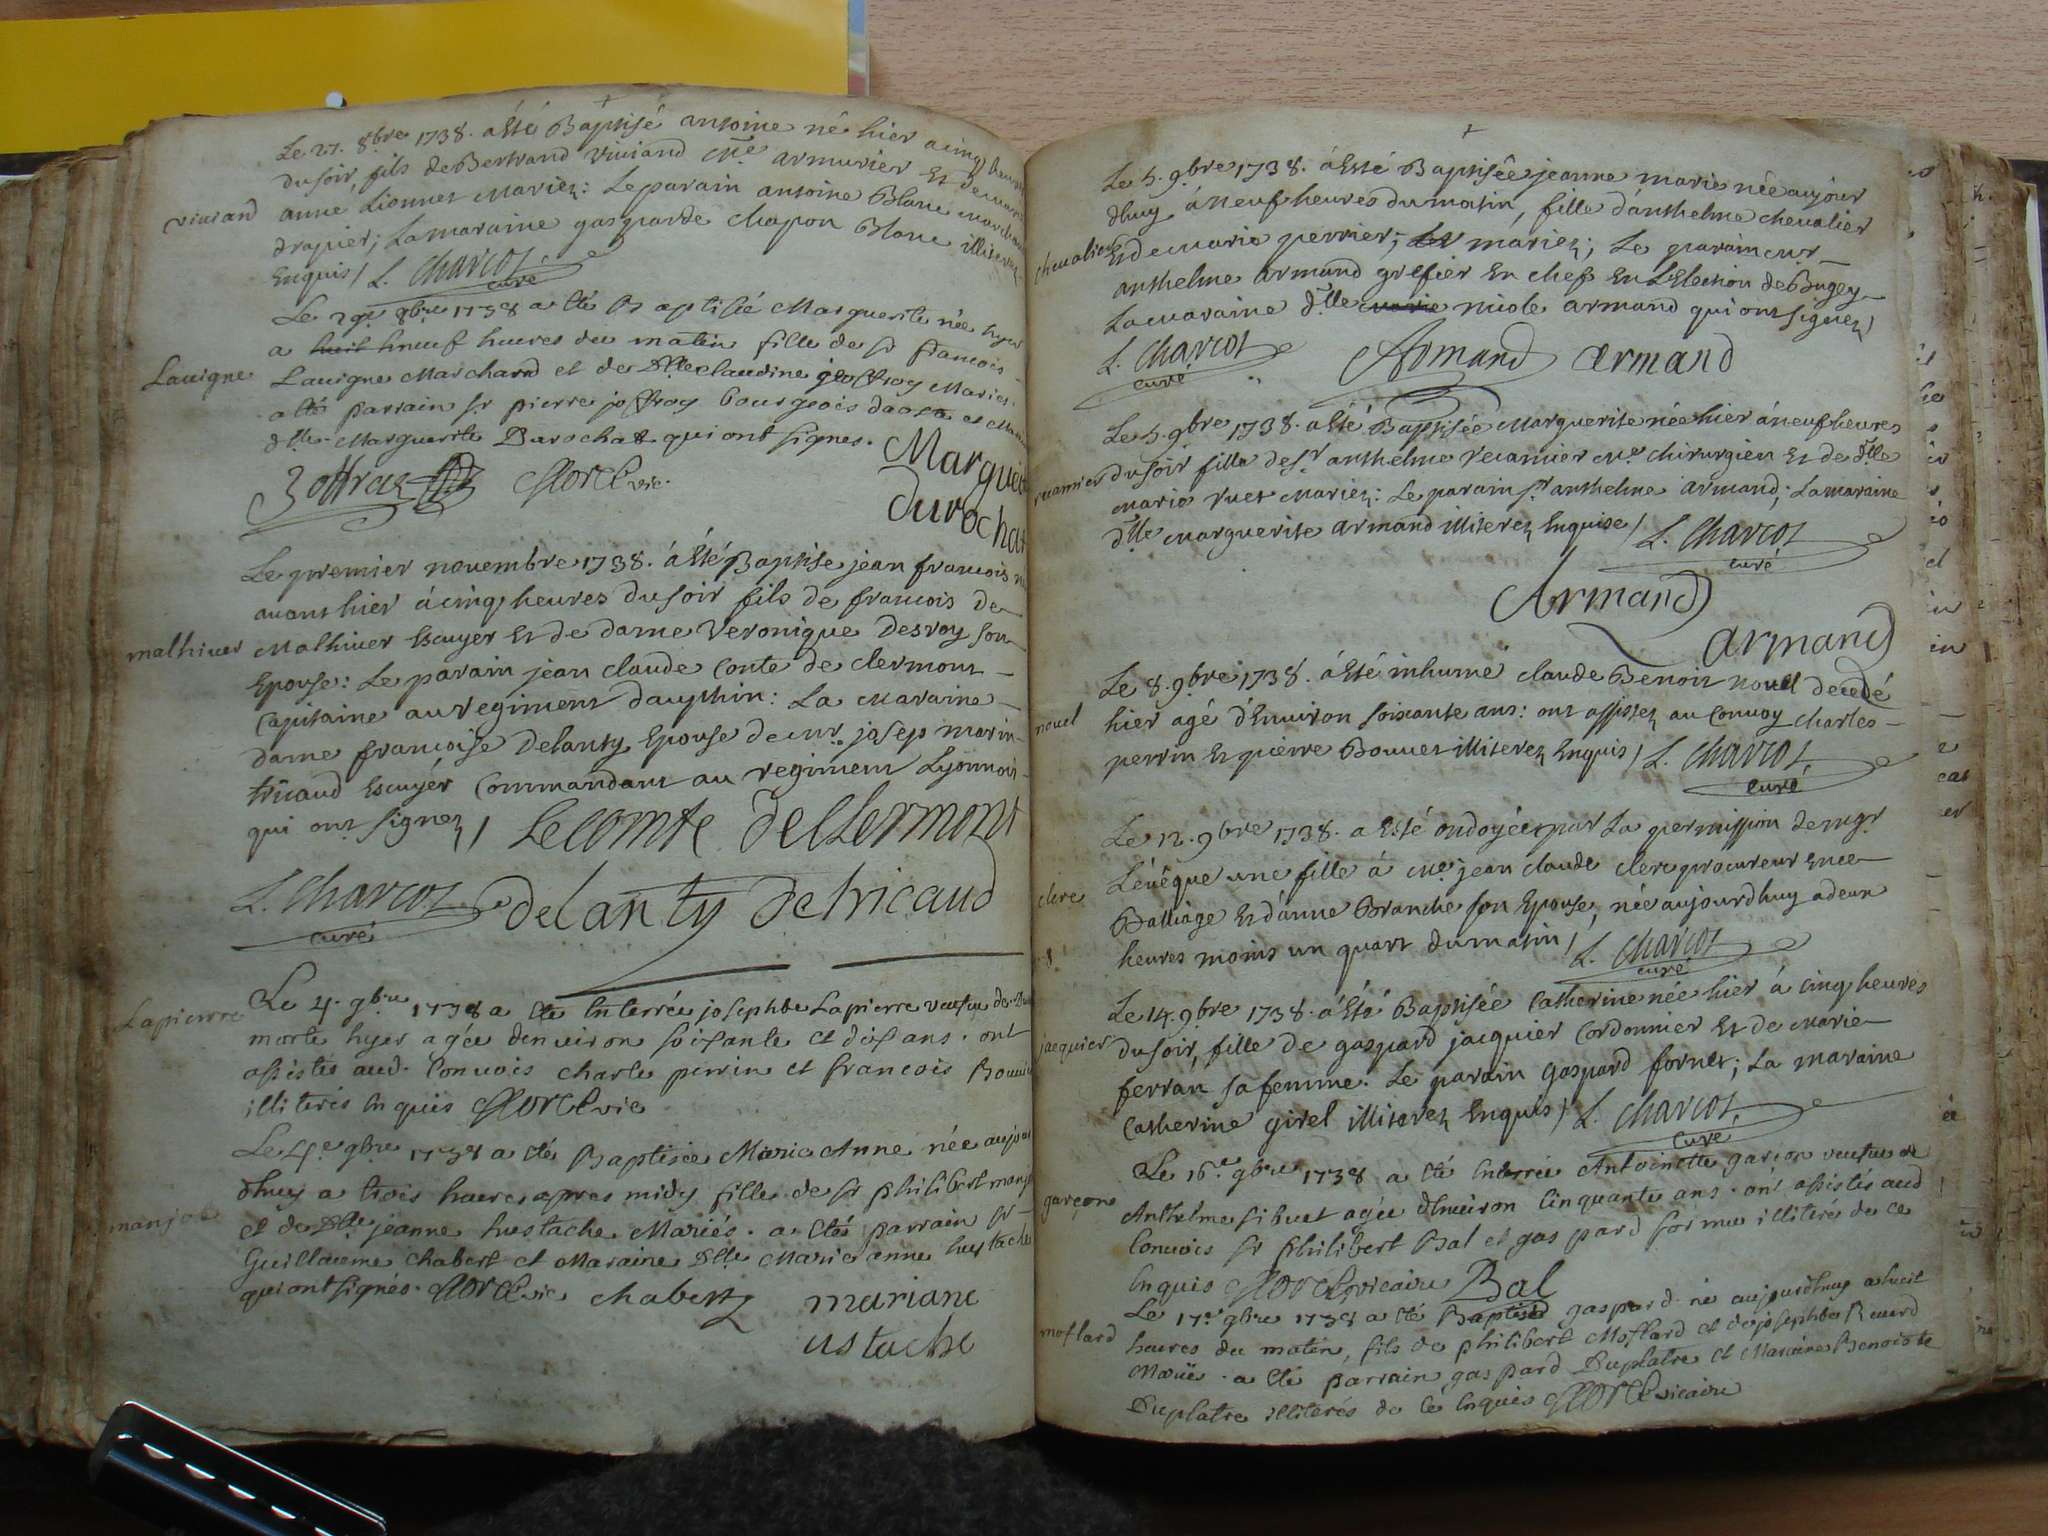 Le 27. 8bre 1738. a Esté Baptisé antoine né hier a cinq heures
du soir, fils de Bertrand viviand Me armurier Et de
viviand
anne Lionnet Mariez: Le parain antoine Blanc
drapier; La maraine gasparde chapon Blanc
Enquis / L. Charcot
curé
Le 29e 8bre 1738 a été Baptisée Marguerite née hyer
a huit hneuf heures du matin fille de sr francois
Lavigne
Lavigne Marchand et de Dlle claudine joffroy Maries.
a été parrain sr pierre joffroy bourgeois daoste et
dlle Marguerite Durochat qui ont signes.
Marguerite
Durochat
Le premier novembre 1738. a Esté Baptisé jean francois
avant hier á cinq heures du soir fils de francois De
malhiver
Malhiver Escuyer Et de dame Veronique Desvoy son
Epouse: Le parain jean claude Conte de clermont
Capitaine au regiment dauphin: La Maraine
dame francoise Delanty Epouse de mr joseph marin
tricaud Escuyér Commandant au regiment Lyonnois
qui ont signez / Lecomte deClermont
L. Charcot
curé
delanty detricaud
Lapierre
Le 4. 9bre 1738 a été Enterrée josephte Lapierre veufve de
morte hyer agée denviron soisante et dix ans. ont
assistés aud. Convois charle perrin et francois
illiterés Enquis
Le 4e 9bre 1738 a été Baptisée Marie Anne née aujour
dhuy a trois heures apres midy fille de sr philibert
manjot
et de Dlle jeanne hustache Mariés. a été parrain sr
Guillaume Chabert et Maraine Dlle Marie anne hustache
qui ont signés. chabert mariane
ustache
Le 5. 9bre 1738. á Esté Baptisêe jeanne marie née aujour
dhuy á neuf heures du matin, fille d'anthelme chevalier
chevalier
Et de marie perrier; mariez; Le parain mr
anthelme armand grefier En chef En L'Election de Bugey
La maraine dlle marie nicole armand qui ont signez /
L. Charcot
curé
Armand armand
Le 5. 9bre 1738. a Eté Baptisée Marguerite née hier á neuf heures
recamier
du soir fille de sr anthelme recamier Me chirurgien Et de dlle
marie ruet Mariez: Le parain sr anthelme armand; La maraine
dlle marguerite armand illiterez Enquise / L. Charcot
curé
Armand
armand
Le 8. 9bre 1738. á Esté inhumé claude Benoit nouel decedé
nouel
hier agé d'Environ soixante ans: ont assistez au Convoy charles
perrin Et pierre Bouvet illiterez Enquis / L. Charcot
curé
Le 12. 9bre 1738. a Esté ondoyée par La permission de mgr
L'évêque une fille á Me jean claude clerc procureur En ce
Balliage Et d'anne Branche son Epouse, née aujourdhuy a deux
heures moins un quart du matin / L. Charcot
curé
Le 14. 9bre 1738. á Eté Baptisée Catherine née hier á cinq heures
jacquier
du soir, fille de gaspard jacquier Cordonnier Et de Marie
ferran sa femme. Le parain gaspard fornet; La maraine
Catherine girel illiterez Enquis / L. Charcot
curé
Le 16e 9bre 1738 a été Enterrée Antoinette garçon veufve de
garçon
Anthelme sibuet agée dEnviron Cinquante ans. ont assistés aud
Convois sr philibert Bal et gaspard illiteré de ce
Enquis vicaire Bal
Le 17e 9bre 1738 a été Baptisé gaspard né aujourdhuy a huit
moflard
heures du matin, fils de philibert Moflard et de josephte
Mariés. a été parrain gaspard Duplatre et Maraine Benoiste
Duplatre illiterés de ce Enquis vicaire